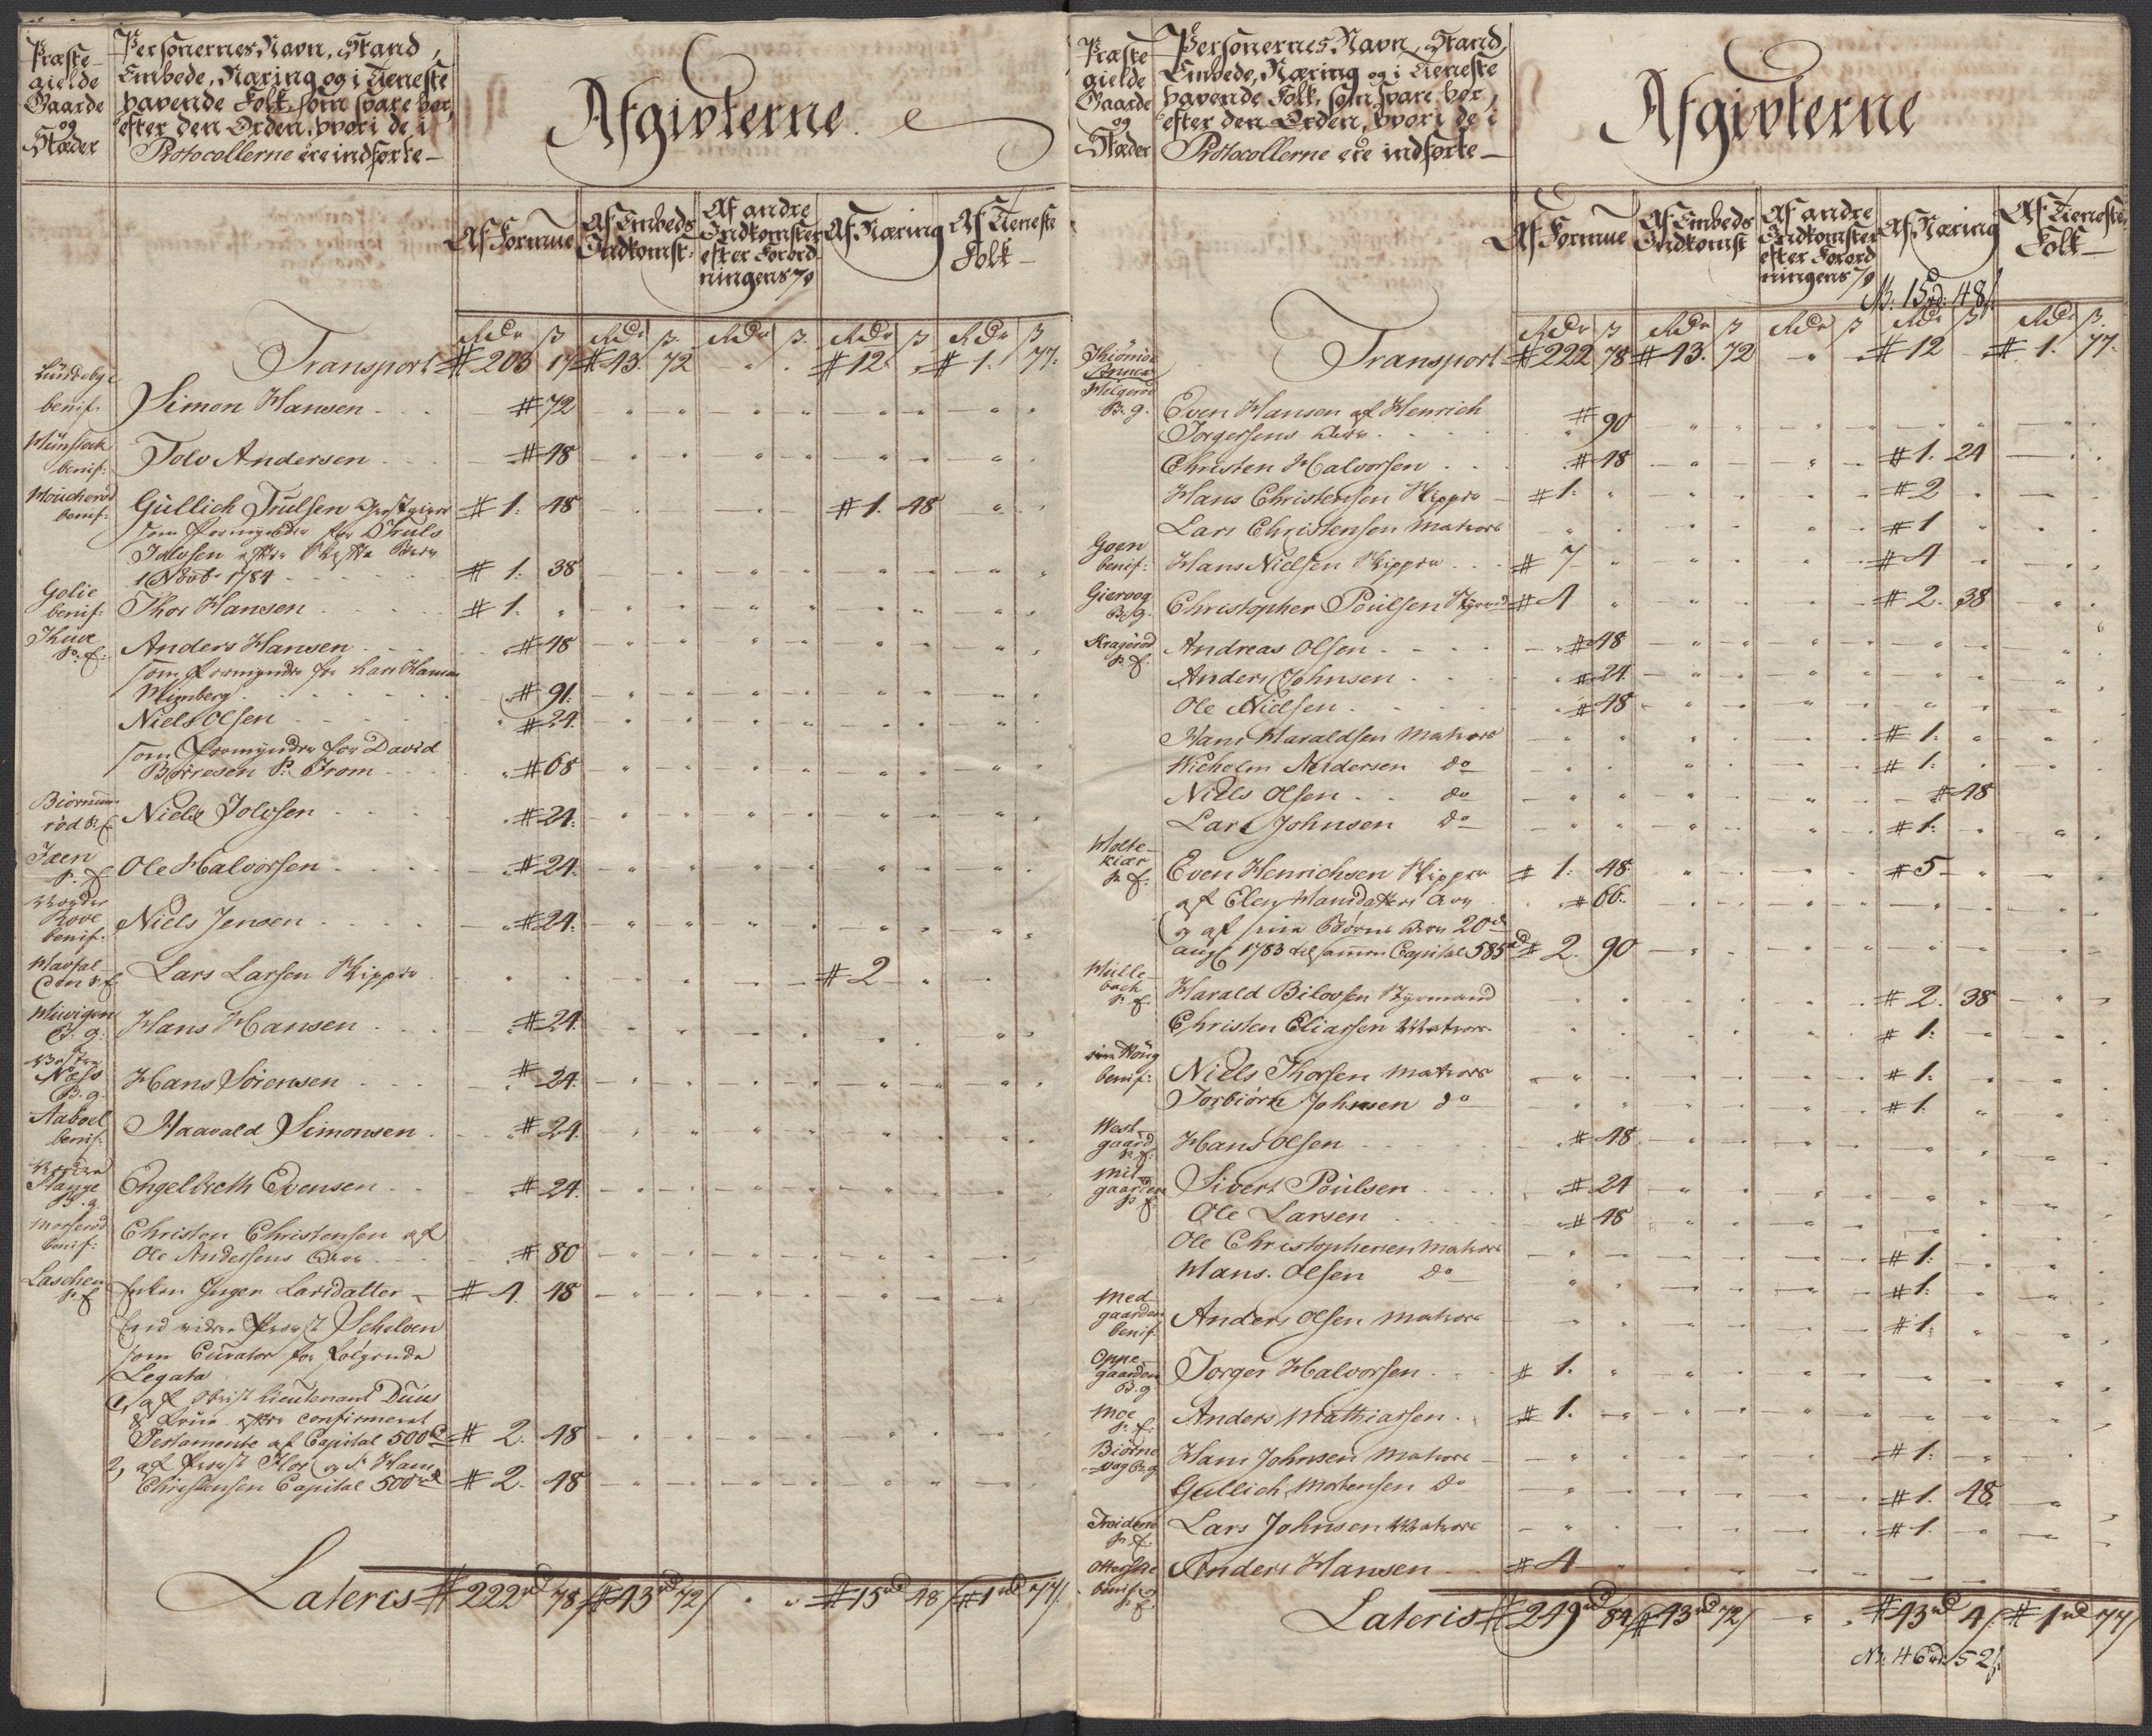 Præste-
gielde
Gaarde
og
Stæder
Personernes Navn, Stand,
Embede, Næring og i Tieneste
havende Folk, som svare her,
efter den Orden, hvori de i
Protocollerne ere indførte —
Afgivterne
Af Formue
Af Embeds
Indkomst
Af andre
Indkomster
efter Forord
ningens 7 §
Af Næring
Af Tieneste
Folk —
Rdr ß Rdr ß Rdr ß Rdr ß Rdr ß
Transport # 203 17 # 43. 72 " " # 12. " # 1. 77.
benif: Simon Hansen # 72
benif: Tolv Andersen # 48
benif: Gullich Trulsen # 1. 48 # 1. 48
som Formynder for Truls
1 Novb 1784 # 1. 38
Golie
benif: Thor Hansen # 1. "
Anders Hansen # 48
som Formynder for Lars Hansen
# 91.
Niels Olsen # 24.
som Formynder for David
Børresen # 68
Niels Jolvsen # 24.
Ole Halvorsen # 24.
benif: Niels Jensen # 24.
Lars Larsen Skipper # 2
B. g. Hans Hansen # 24.
Næss
B. g. Hans Sörensen # 24.
Aaboel
benif: Haavald Simonsen # 24.
Stange
B. g. Engelbreth Evensen # 24.
benif: Christen Christensen af
Ole Andersens Arv # 80
Enken Inger Larsdatter # 4. 48
Schelven
som Curator for følgende
Legata
1, af Obrist Lieutenant Duus
& Frue efter confirmeret
Testamente af Capital 500rd # 2. 48
2, af Provst
Christensen Capital 500rd # 2. 48
Lateris # 222rd 78/ # 43rd 72/ " " # 15rd 48/ # 1rd 77/.
Præste
gielde
Gaarde
og
Stæder
Personernes Navn, Stand,
Embede, Næring og i Tieneste
havende Folk, som svare her,
efter den Orden, hvori de i
Protocollerne ere indførte —
Afgivterne
Af Formue
Af Embeds
Indkomst
Af andre
Indkomster
efter Forord
ningens 7 §
Af Næring
Af Tieneste
Folk —
N: 15rd: 48/.
Rdr ß Rdr ß Rdr ß Rdr ß Rdr ß
Transport # 222 78 # 43. 72 " " # 12 # 1. 77.
B. g. Even Hansen af Henrich
Torgersens Arv # 90
Christen Halvorsen # 48 # 1. 24
Hans Christensen Skipper # 1. " # 2
Lars Christensen Matros # 1
Goen
benif: Hans Nielsen Skipper # 7 # 4
B. g. Christopher Poulsen # 4 # 2. 38
Kragerød
Andreas Olsen # 48
Anders Johnsen # 24.
Ole Nielsen # 48
Hans Haraldsen Matros # 1.
Andersen do # 1.
Niels Olsen do # 48
Lars Johnsen do # 1.
Even Henrichsen Skipper # 1. 48 # 5
af Elen Hansdatters Arv # 66.
og af sine Børns Arv 20de
Aug 1783 Capital 585rd # 2. 90
Harald Bilovsen Styrmand # 2. 38
Christen Eliassen Matros # 1.
benif: Niels Thorsen Matros # 1.
Torbiörn Johnsen do # 1.
West
gaard
Hans Olsen # 48
gaarden
Sivert Poulsen # 24
Ole Larsen # 48
Ole Christophersen Matros # 1.
Hans Olsen do # 1.
Med
gaarden
benif. Anders Olsen Matros # 1.
Oppe
gaarden
B. g. Torger Halvorsen # 1.
Moe
Anders Mathiassen # 1.
Biörne
Hans Johnsen Matros # 1.
Gullich Mortensen do # 1. 48.
Lars Johnsen Matros # 1.
Anders Hansen # 4
Lateris # 249rd 84/ # 43rd 72/ " # 43rd 4/ # 1rd 77/
N: 46rd: 52/.